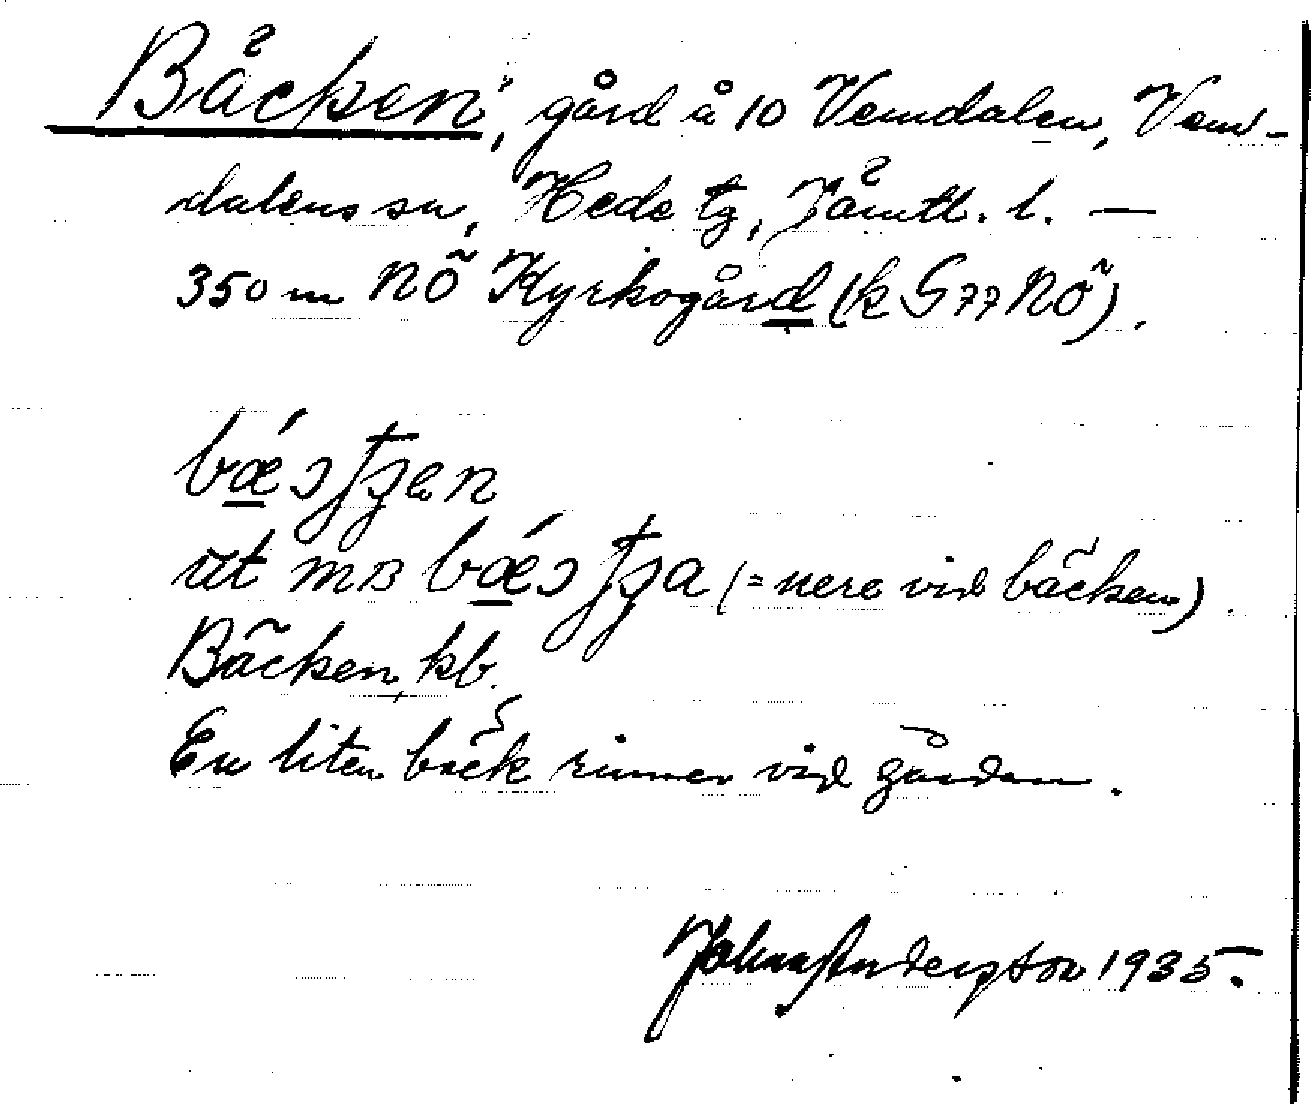 Bäcken, gård å 10 Vemdalen, Vem-
dalens sn, Hede tg, Jämtl. l. —
350 m NÖ Kyrkogård (k G77 NÖ).
Bäcken, kb.
(= nere vid bäcken)
En liten bäck rinner vid gården.
John Anderston 1935.